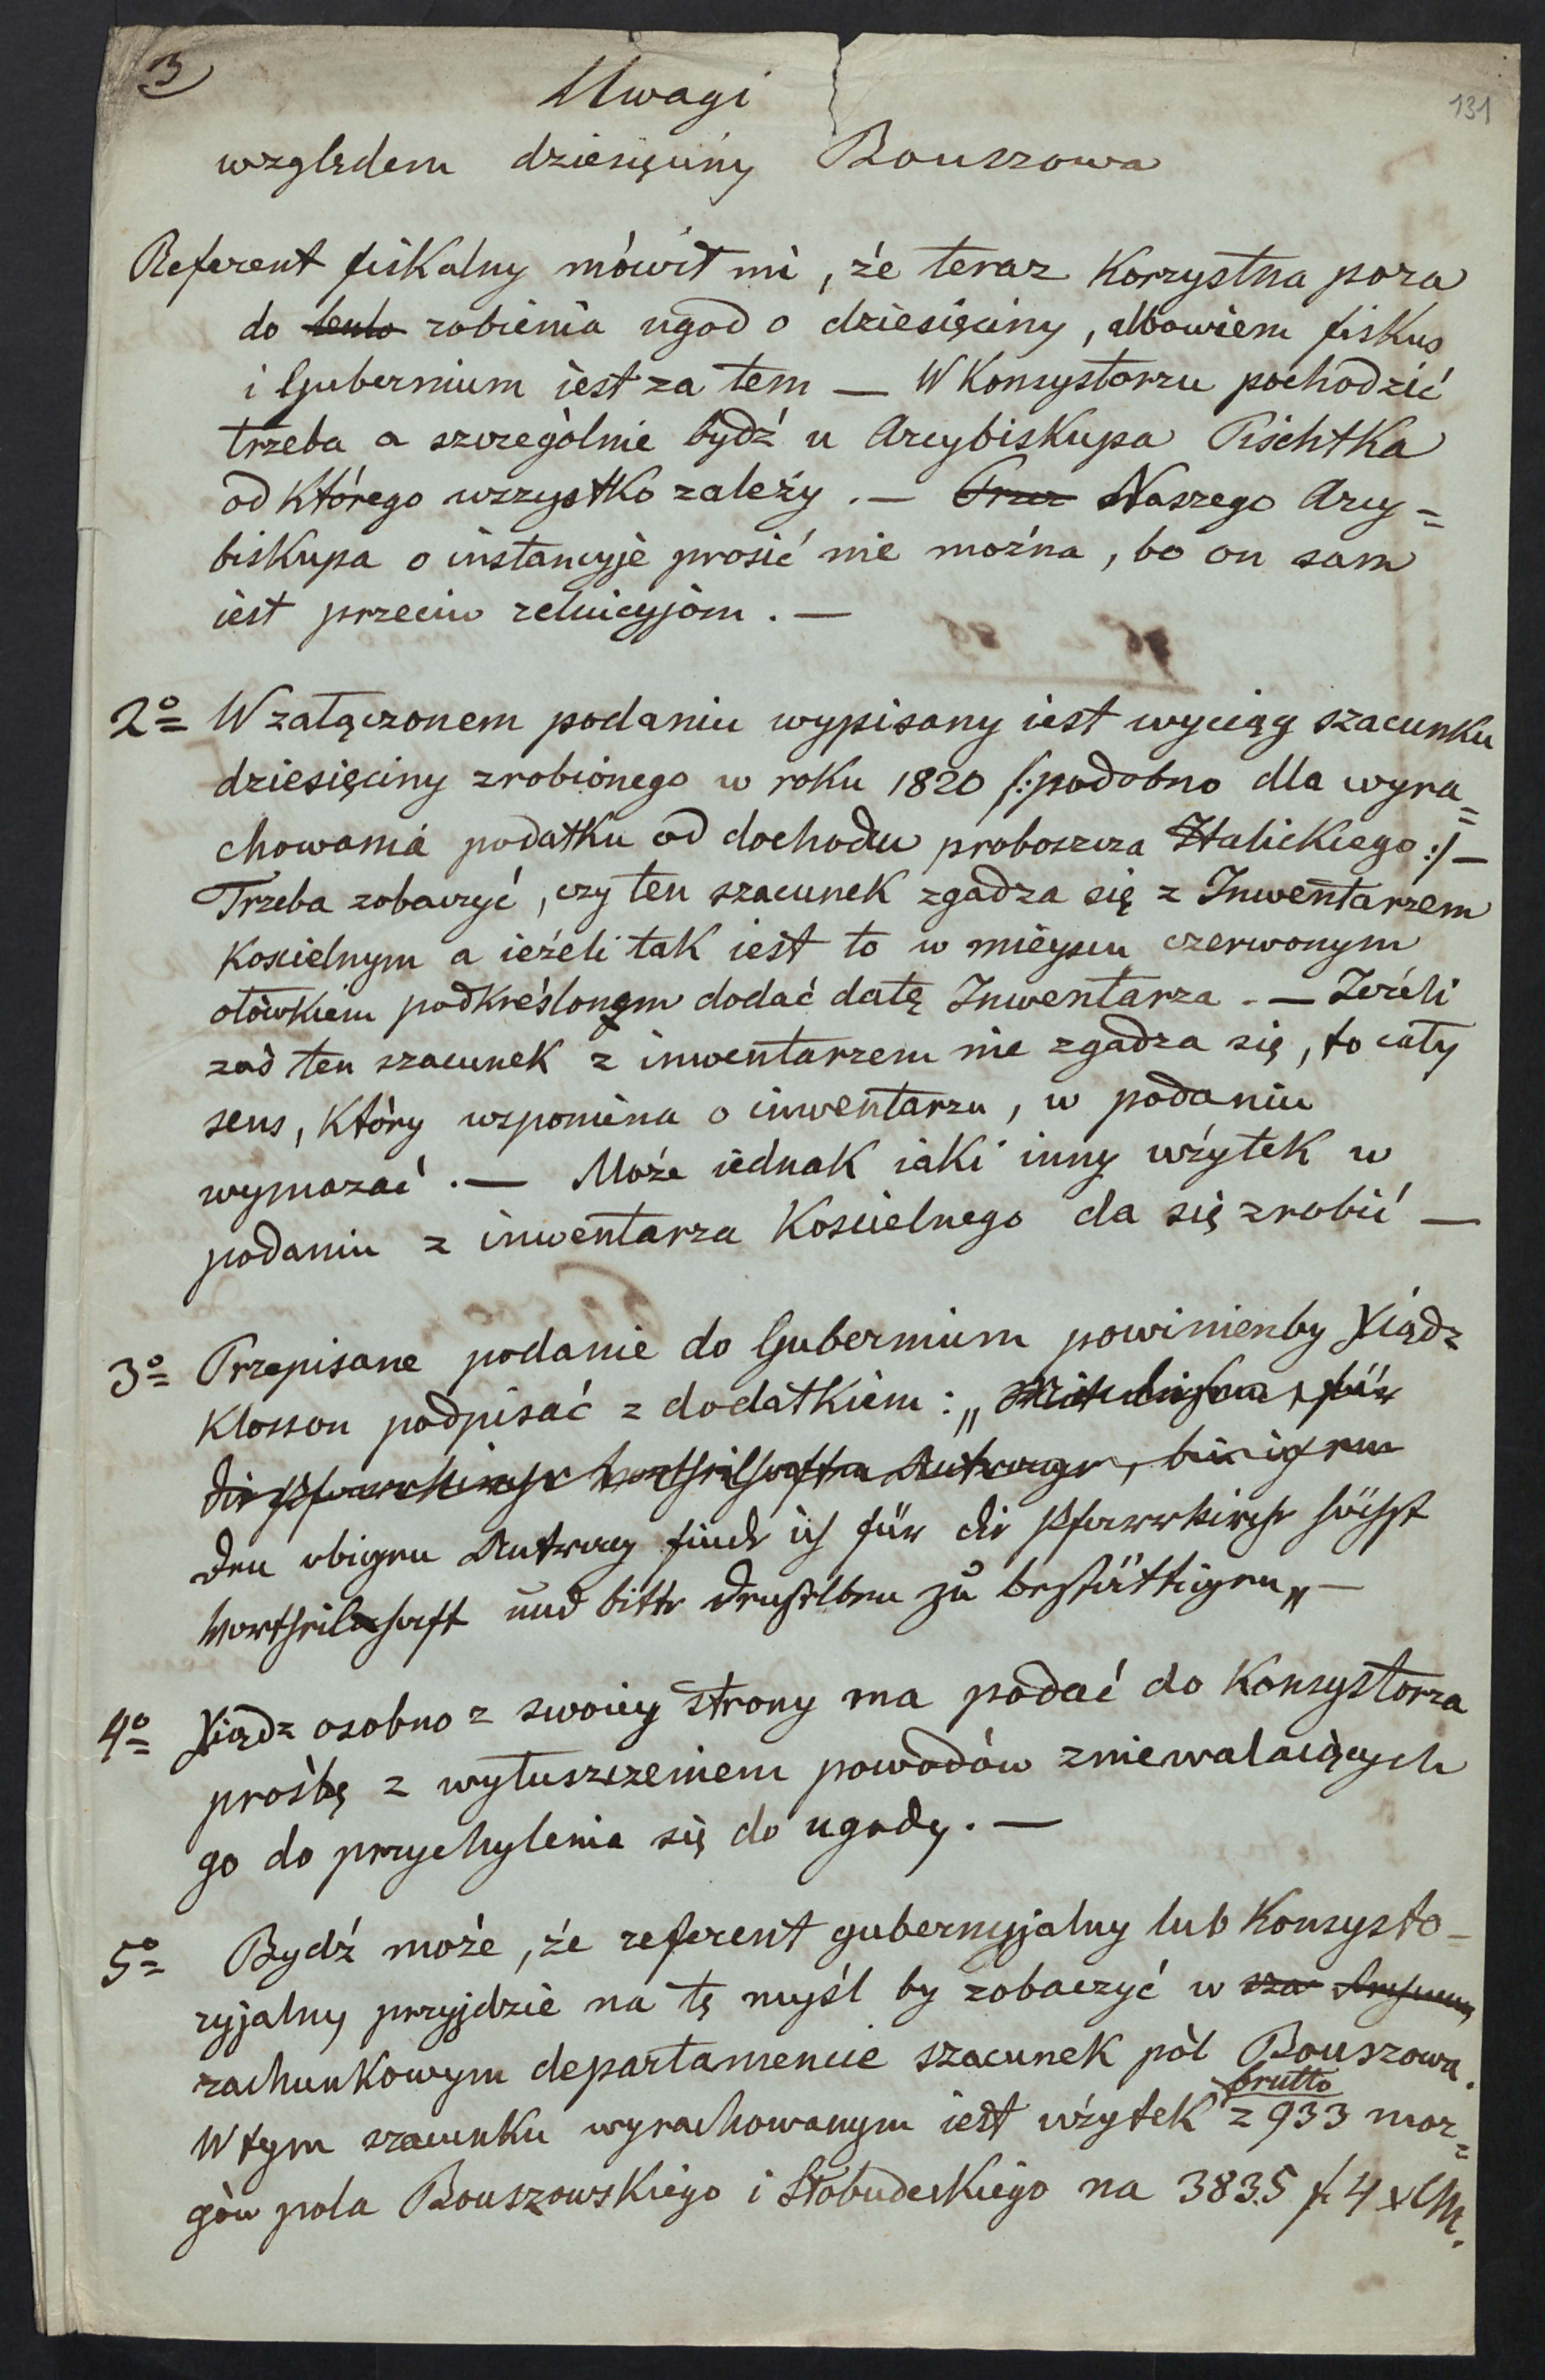 3
131
Uwagi
względem dziesięciny Bouszowa
Referent fiskalny mówił mi, że teraz korzystna pora
do robienia ugod o dziesięciny, albowiem fiskus
i Gubernium iest za tem — W Konsystorzu pochodzić
trzeba a szczególnie bydź u Arcybiskupa Pischtka
od którego wszystko zależy. — Przez Naszego Arcy=
biskupa o instancyje prosić nie można, bo on sam
iest przeciw reluicyjom. —
2o= W załączonem podaniu wypisany iest wyciąg szacunku
dziesięciny zrobionego w roku 1820 /: podobno dla wyra=
chowania podatku od dochodu proboszcza Halickiego :/ —
Trzeba zobaczyć, czy ten szacunek zgadza się z Inwentarzem
koscielnym a ieżeli tak iest to w mieyscu czerwonym
ołówkiem podkreślonym dodać datę Inwentarza. — Jeżeli
zaś ten szacunek z inwentarzem nie zgadza się, to cały
sens, który wspomina o inwentarzu, w podaniu
wymazać. — Może iednak iaki inny użytek w
podaniu z inwentarza Koscielnego da się zrobić —
3o= Przepisane podanie do Gubernium powinienby Xiądz
Klosson podpisać z dodatkiem: „ für
die Pfarrkirche vortheilhaften Antrage,
den obigen Antrag finde ich für die Pfarrkirche höchst
vortheilhaft und bitte denselben zu bestättigen „ —
4o= Xiądz osobno z swoiey strony ma podać do Konsystorza
prośbę z wyłuszczeniem powodów zniewalaiących
go do przychylenia się do ugody. —
5o= Bydź może, że referent gubernyjalny lub Konsysto-
ryjalny przyjdzie na tę myśl by zobaczyć w sza
rachunkowym departamencie szacunek pól Bouszowa.
brutto
W tym szacunku wyrachowanym iest użytek z 933 mor=
gów pola Bouszowskiego i Słobudeckiego na 3835 f 4 x CM.